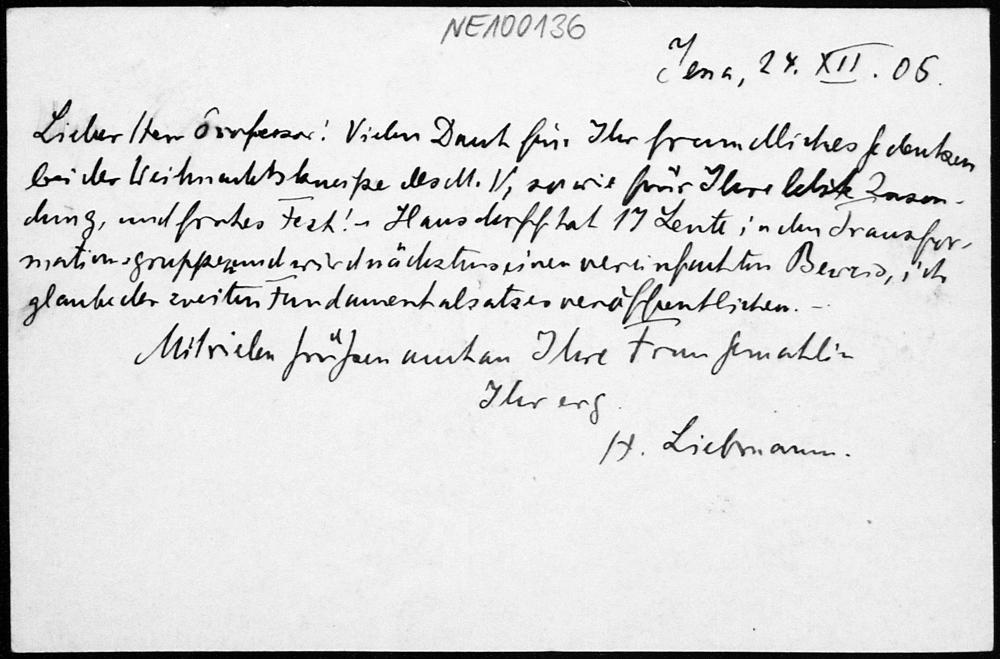 NE100136
Jena, 24. XII. 06.
Lieber Herr Professor! Vielen Dank für Ihr freundliches Gedenken
bei der Weihnachtskneipe des M. V., sowie für Ihre letzte Zusen-
dung, und frohes Fest! - Hausdorff hat 17 Leute in den Transfor-
mationsgruppen und wird nächstens einen vereinfachten Beweis, ich
glaube der zweiten Fundamentalsatzes veröffentlichen. -
Mit vielen Grüßen auch an Ihre Frau Gemahlin
Ihr erg.
H. Liebmann.